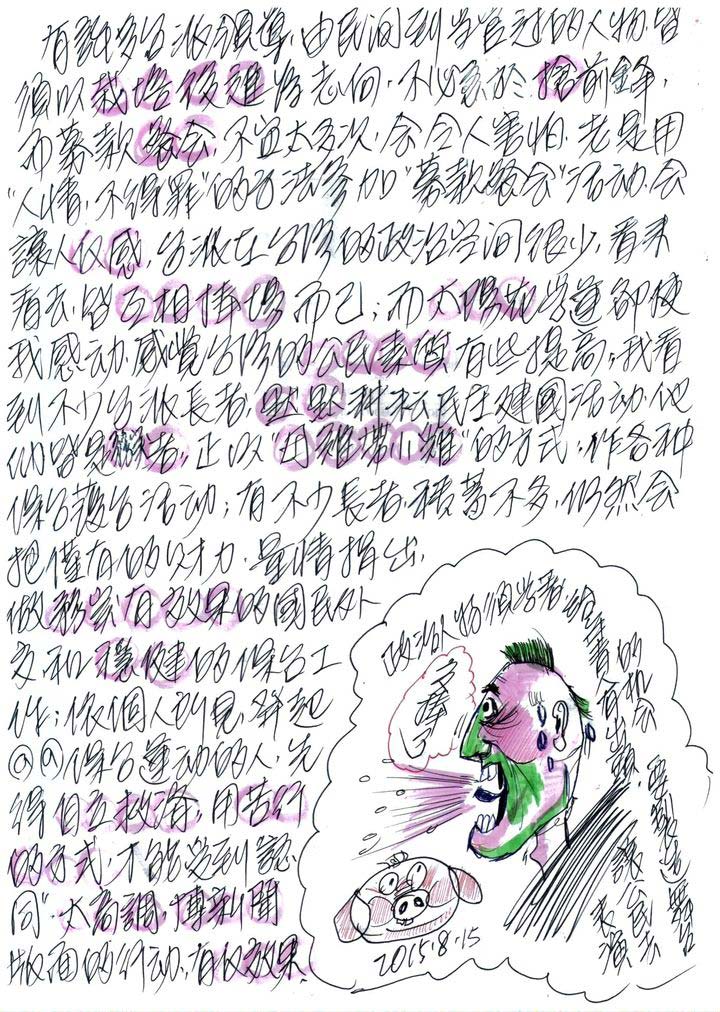 有許多台派領導,由民间到当官过的人物,皆
須以栽培後進为志向,不必急於搶前鋒,
而募款餐会,不宜太多次,会令人害怕,老是用
"人情,不得罪"的方法参加"募款餐会"活动,会
讓人反感,台派在台湾的政治空间很少,看来
看去,皆互相捧場而已;而太陽花学運卻使
我感动,感覚台湾的公民素質有些提高,我看
到不少台派長者,默默耕耘民主建國活动,他
们皆是,正以"母雞帶小雞"的方式,作各种
保台護台活动;有不少長者,積蓄不多,仍然会
把僅有的财力,量情捐出,
做務实有效果的國民外
交和穩健的保台工
作;依個人所見,發起
保台運动的人,先
得自立救济,用苦行
的方式,才能受到認
同"太高調,博新聞
版面的行动,有反效果.
政治人物須培養給
青年
的机会
有出頭
要製造舞台
讓民去
表演
2015.8.15